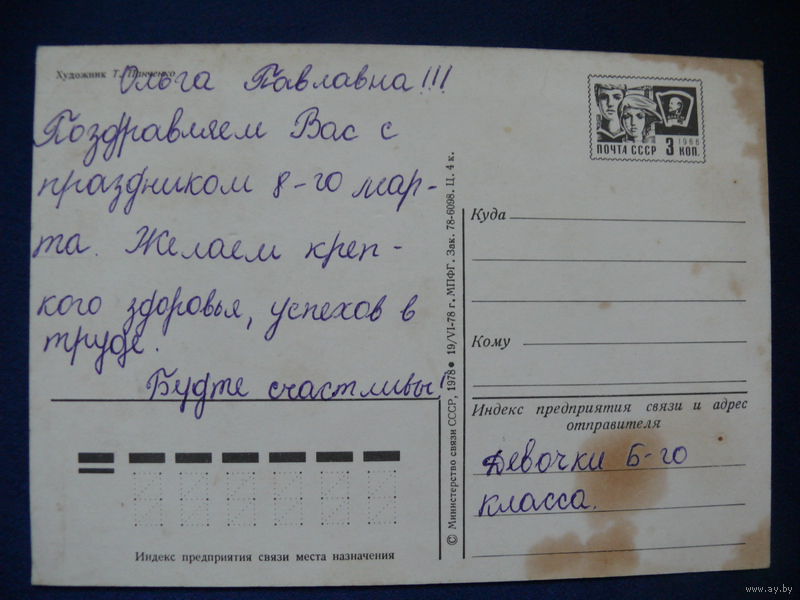 Художник Т. Панченко
Ольга Павлавна!!!
Поздравляем Вас с
праздником 8-го мар-
та. Желаем креп-
кого здоровья, успехов в
труде.
Будте счастливы!
Индекс предприятия связи места назначения
© Министерство связи СССР, 1978 ● 19/VI-78 г. МПФГ. Зак. 78-6098. Ц. 4 к.
1966
ПОЧТА СССР 3 КОП.
Куда
Кому
Индекс предприятия связи и адрес
отправителя
Девочки Б-го
класса.
www.ay.by